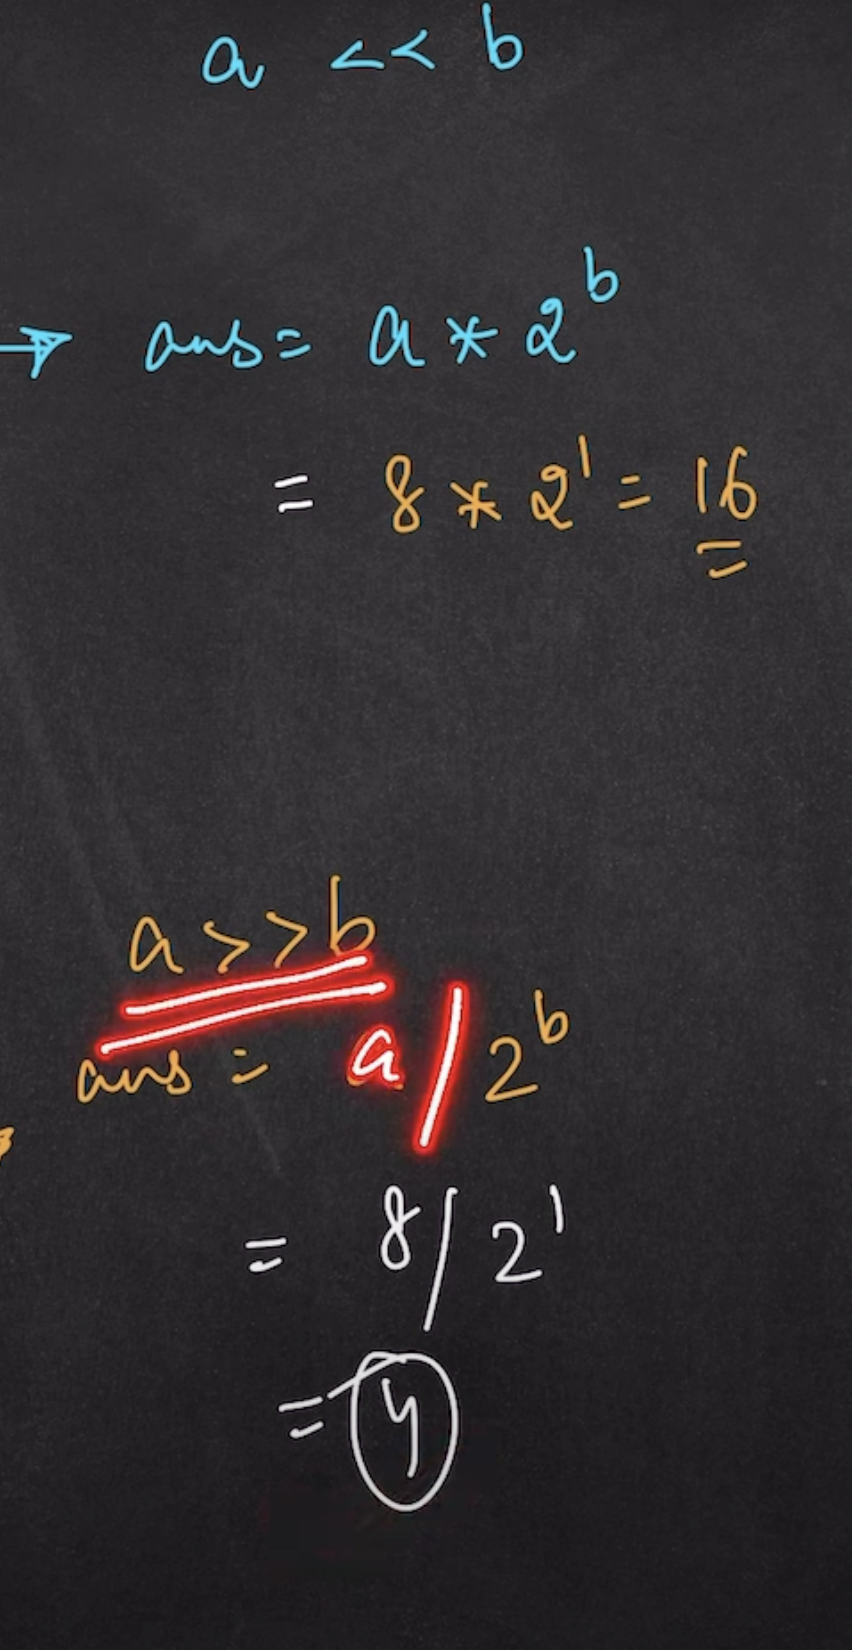 a << b
ans = a * 2^b
= 8 * 2^1 = 16
a >> b
ans = a / 2^b
= 8 / 2^1
= 4